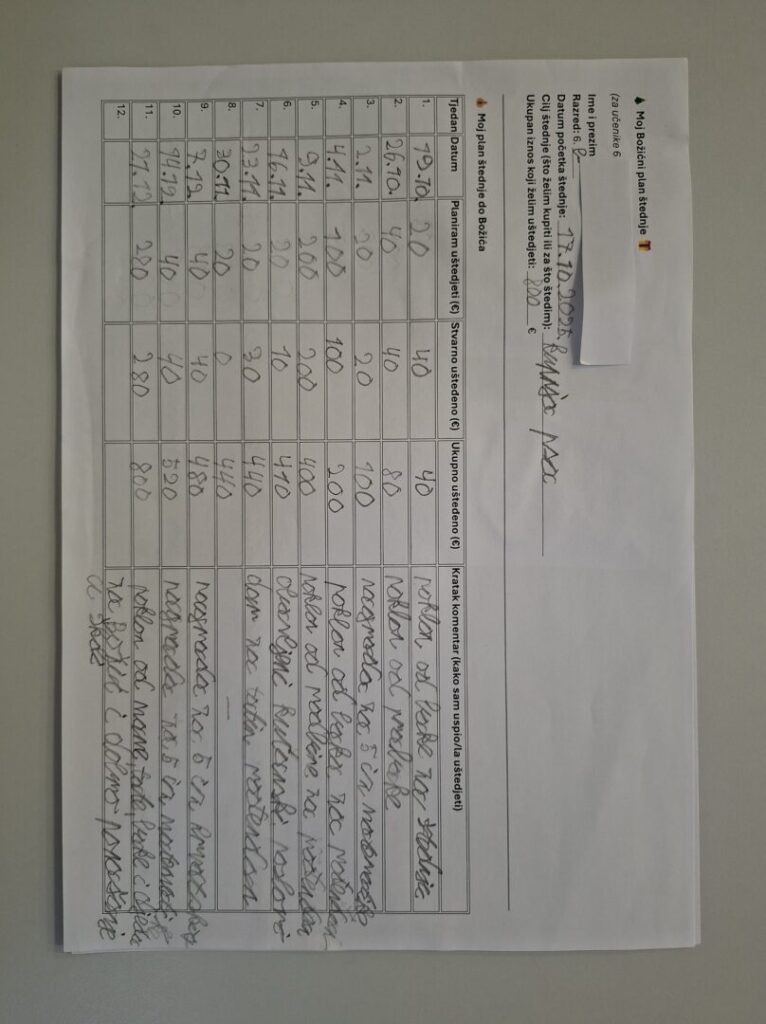 🎄 Moj Božićni plan štednje 🎁
(za učenike 6
Ime i prezim
Razred: 6.
Datum početka štednje: 17.10.2025.
Cilj štednje (što želim kupiti ili za što štedim): psa
Ukupan iznos koji želim uštedjeti: 800 €
💰 Moj plan štednje do Božića
Tjedan Datum Planiram uštedjeti (€) Stvarno ušteđeno (€) Ukupno ušteđeno (€) Kratak komentar (kako sam uspio/la uštedjeti)
1. 19.10. 20 40 40 poklon od bake
2. 26.10. 40 40 80 poklon od prabake
3. 2.11. 20 20 100 nagrada za 5 iz
4. 4.11. 100 100 200 poklon od bake za rođendan
5. 9.11. 200 200 400 poklon od rodbine za rođendan
6. 16.11. 20 10 410 kućanski poslovi
7. 23.11. 20 30 440 dar za rođendan
8. 30.11. 20 0 440 —
9. 7.12. 40 40 480 nagrada za 5 iz
10. 14.12. 40 40 520 nagrada za 5 iz matematike
11. 21.12. 280 280 800 poklon od mame, tate, bake i djeda
12. na Božić i dobro ponašanje